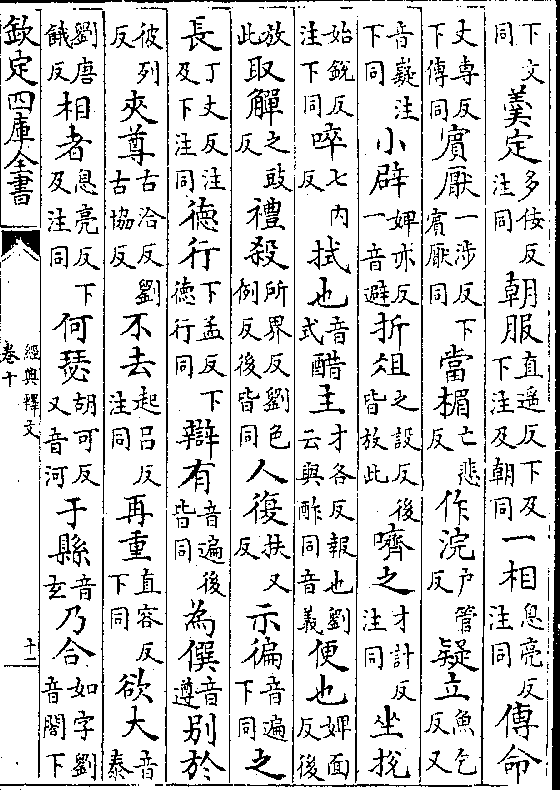 下文同羮定多佞反注同朝服直遥反下及下注及朝同一相息亮反注同傳命
丈専反下傳同賔厭一涉反下賔厭同當楣亡悲反作浣戶管反疑立魚乞反又
音嶷注下同小辟婢亦反一音避折俎之設反後皆放此嚌之才計反注同坐挩
始銳反注下同啐七内反拭也音式醋主才各反報也劉云與酢同音義便也婢面反後
放此取觶之豉反禮殺所界反劉色例反後皆同人復扶又反示徧音遍下同之
長丁丈反注及下注同徳行下孟反下徳行同辯有音遍後皆同為僎音遵别於
彼列反夾尊古洽反劉古協反不去起吕反注同再重直容反下同欲大音泰
劉唐餓反相者息亮反下及注同何瑟胡可反又音河于縣音玄乃合如字劉音閤下
欽定四庫全書
經典釋文
卷十
十二